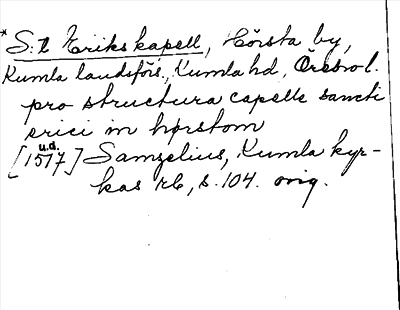 * S:t Eriks kapell, Hörsta by,
Kumla landsförs., Kumla hd, Örebro l.
pro structura capelle sancti
erici in hørstom
u.d.
[1517] Samzelius, Kumla kyr-
kas rb, s. 104. orig.